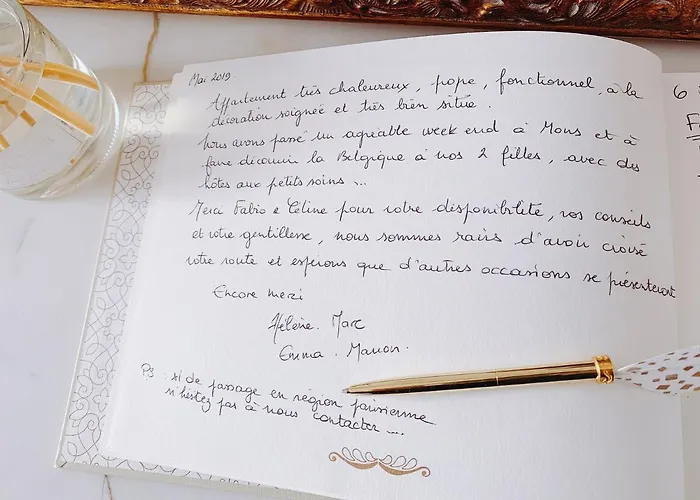 Mai 2019.
Appartement très chaleureux, pope, fonctionnel, à la
décoration soignée et très bien située.
Nous avons passé un agréable week end à Mons et à
faire découvrir la Belgique à nos 2 filles, avec des
hôtes aux petits soins ...
Merci Fabio e Céline pour votre disponibilité, vos conseils
et votre gentillesse, nous sommes ravis d'avoir croisé
votre route et espérons que d'autres occasions se présenteront
Encore merci
Hélène. Marc
Emma. Manon.
PS : si de passage en région parisienne
n'hésitez pas à nous contacter ....
6
F